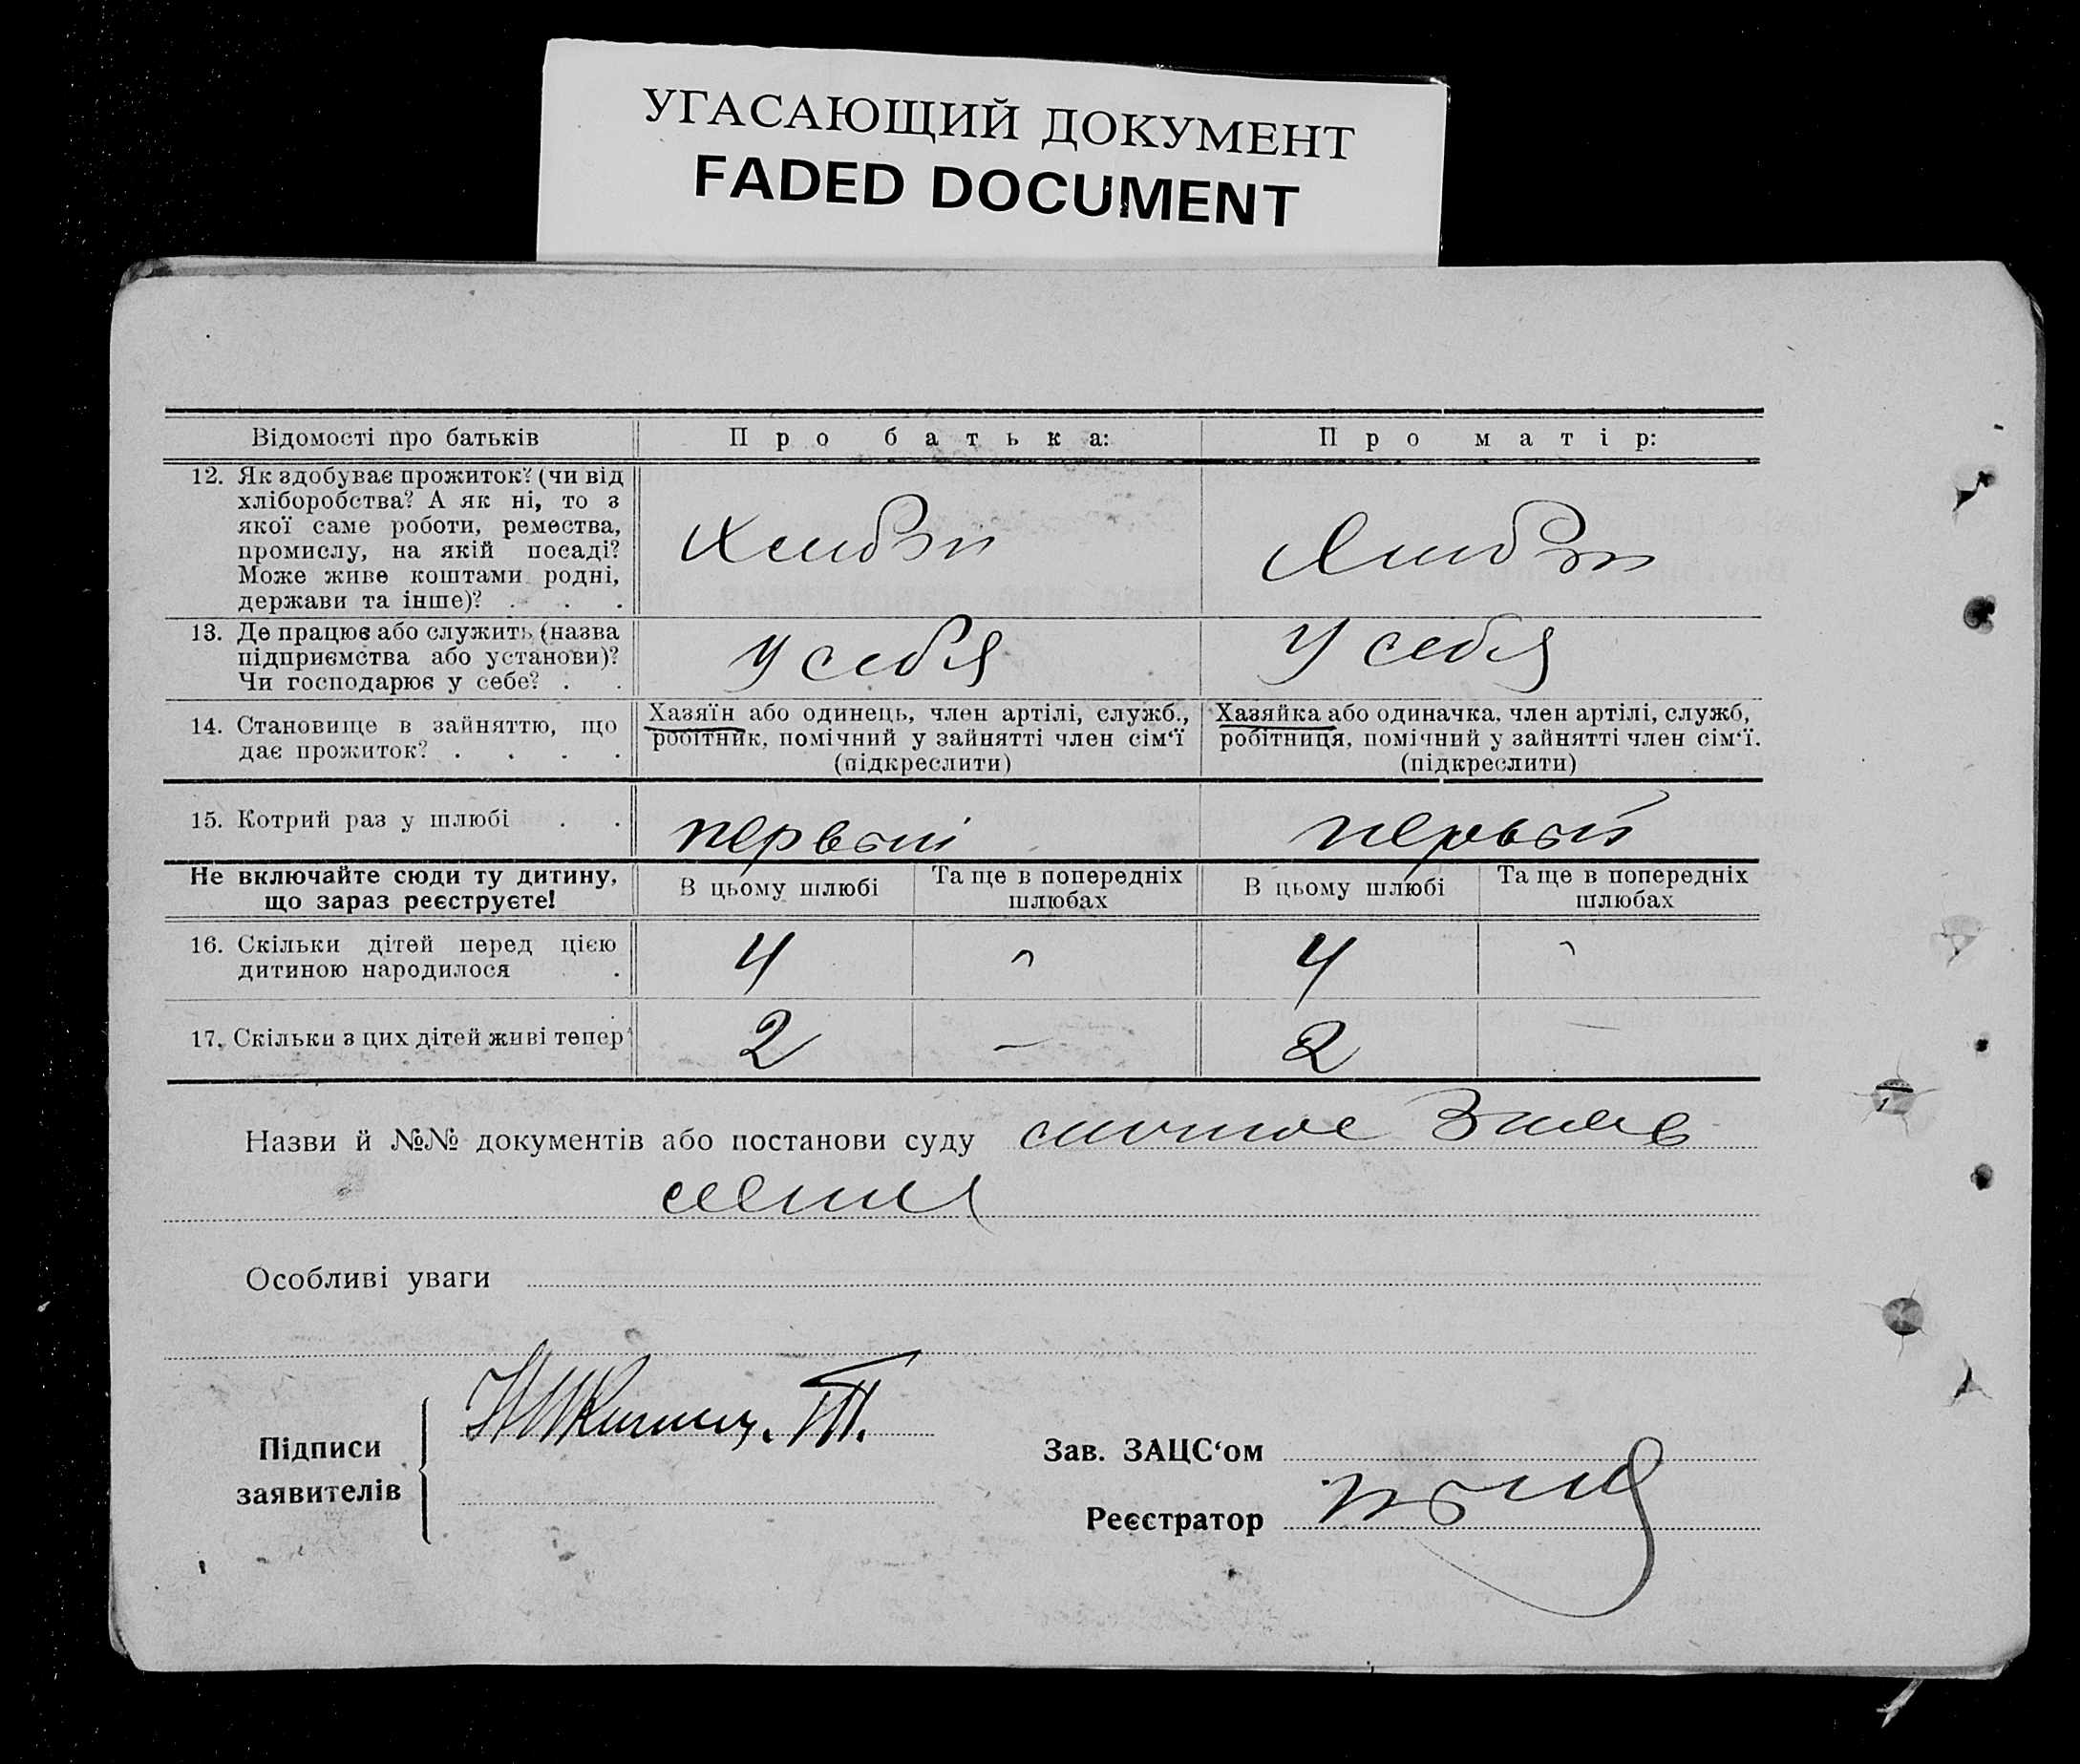 УГАСАЮЩИЙ ДОКУМЕНТ
FADED DOCUMENT
Відомості про батьків
Про батька:
Про матір:
12. Як здобуває прожиток? (чи від
хліборобства? А як ні, то з
якої саме роботи, ремества,
промислу, на якій посаді?
Може живе коштами родні,
держави та інше)? . . .
13. Де працює або служить (назва
підприємства або установи)?
Чи господарює у себе? . .
у себя
у себя
14. Становище в зайняттю, що
дає прожиток? . . . .
Хазяїн або одинець, член артілі, служб.,
робітник, помічний у зайнятті член сім‘ї
(підкреслити)
Хазяйка або одиначка, член артілі, служб,
робітниця, помічний у зайнятті член сім‘ї.
(підкреслити)
15. Котрий раз у шлюбі . .
первый
первый
Не включайте сюди ту дитину,
що зараз реєструєте!
В цьому шлюбі
Та ще в попередніх
шлюбах
В цьому шлюбі
Та ще в попередніх
шлюбах
16. Скільки дітей перед цією
дитиною народилося .
4
4
17. Скільки з цих дітей живі тепер
2
—
2
—
Назви й №№ документів або постанови суду
Особливі уваги
Підписи
заявителів
Зав. ЗАЦС‘ом
Реєстратор